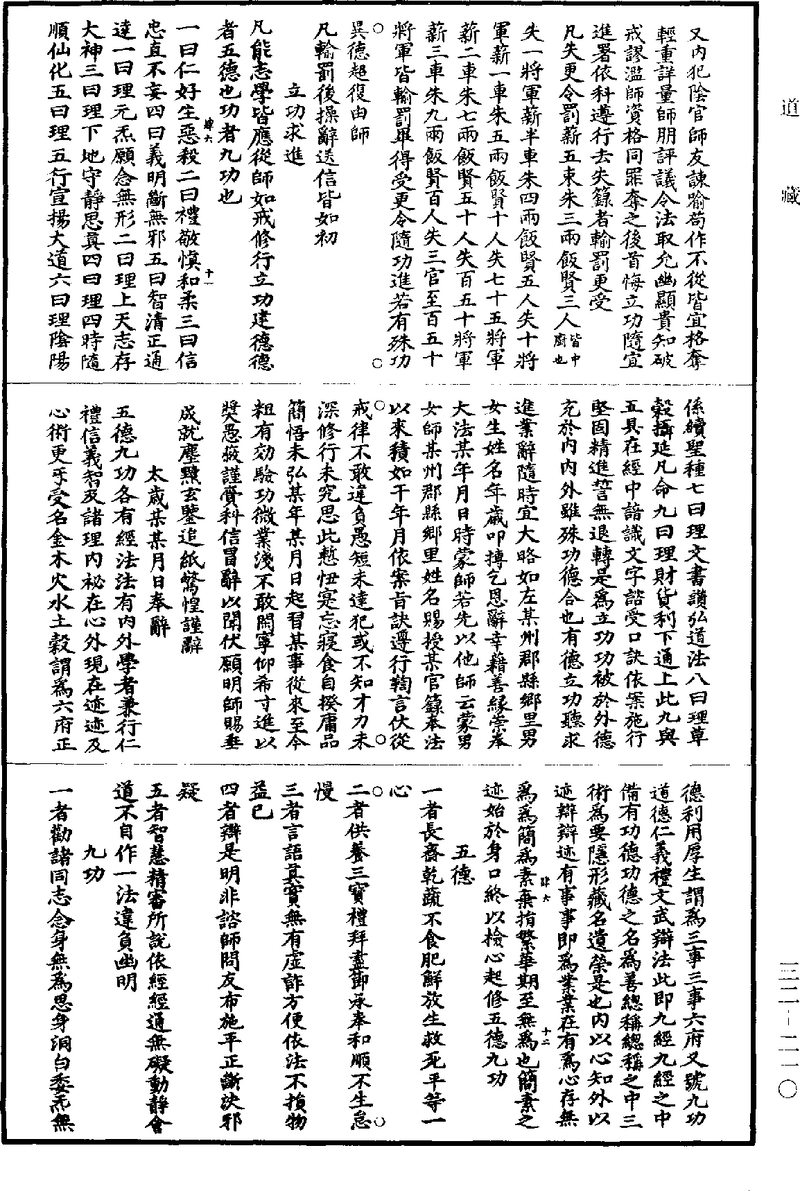 道藏
又內犯陰官師友諫喻苟作不從皆宜格奪
輕重詳量師朋評議令法取允幽顯貴知破
戒謬濫師資格同罪奪之後首悔立功隨宜
進署依科遵行去失籙者輸罰更受
凡失更令罰薪五束朱三兩飯賢三人皆中廚也
失一將軍薪半車朱四兩飯賢五人失十將
軍薪一車朱五兩飯賢十人失七十五將軍
薪二車朱七兩飯賢五十人失百五十將軍
薪三車朱九兩飯賢百人失三官至百五十
將軍皆輸罰畢得受更令隨功進若有殊功
異德超復由師
凡輸罰後操辭送信皆如初
立功求進
凡能志學皆應從師如戒修行立功建德德
者五德也功者九功也
肆六 十一
一曰仁好生惡殺二曰禮敬慎和柔三曰信
忠直不妄四曰義明斷無邪五曰智清正通
達一曰理元炁願念無形二曰理上天志存
大神三曰理下地守靜思真四曰理四時隨
順仙化五曰理五行宣揚大道六曰理陰陽
係續聖種七曰理文書讚弘道法八曰理草
穀攝延凡命九曰理財貨利下通上此九與
五具在經中諳識文字諮受口訣依案施行
堅固精進誓無退轉是為立功功被於外德
充於內內外雖殊功德合也有德立功聽求
進業辭隨時宜大略如左某州郡縣鄉里男
女生姓名年歲叩搏乞恩辭幸藉善緣崇奉
大法某年月日時蒙師若先以他師云蒙男
女師某州郡縣鄉里姓名賜授某官籙奉法
以來積如干年月依案旨訣遵行鞫言伏從
戒律不敢違負愚短未達犯或不知才力未
深修行未究思此慙忸寔忘寢食自揆庸品
簡悟未弘某年某月日起習某事從來至今
粗有効驗功微業淺不敢閉寧仰希寸進以
獎愚蔽謹賫科信冒辭以聞伏願明師賜垂
成就塵黷玄鑒追紙驚惶謹辭
太歲某某月日奉辭
五德九功各有經法法有內外學者兼行仁
禮信義智及諸理內祕在心外現在迹迹及
心術更㸦受名金木火水土穀謂為六府正
德利用厚生謂為三事三事六府又號九功
道德仁義禮文武辯法此即九經九經之中
備有功德功德之名為善總稱總稱之中三
術為要隱形藏名遺榮是也內以心知外以
迹辯辯迹有事事即為業業在有為心存無
為為簡為素棄捐繁華期至無為也簡素之
肆六 十二
迹始於身口終以檢心起修五德九功
五德
一者長齋乾蔬不食肥鮮放生救死平等一
心
二者供養三寶禮拜盡節承奉和順不生怠
慢
三者言語真實無有虛詐方便依法不損物
益己
四者辯是明非諮師問友布施平正斷決邪
疑
五者智慧精審所說依經經通無礙動靜會
道不自作一法違負幽明
九功
一者勸諸同志念身無為思身洞白委炁無
三二－二一〇